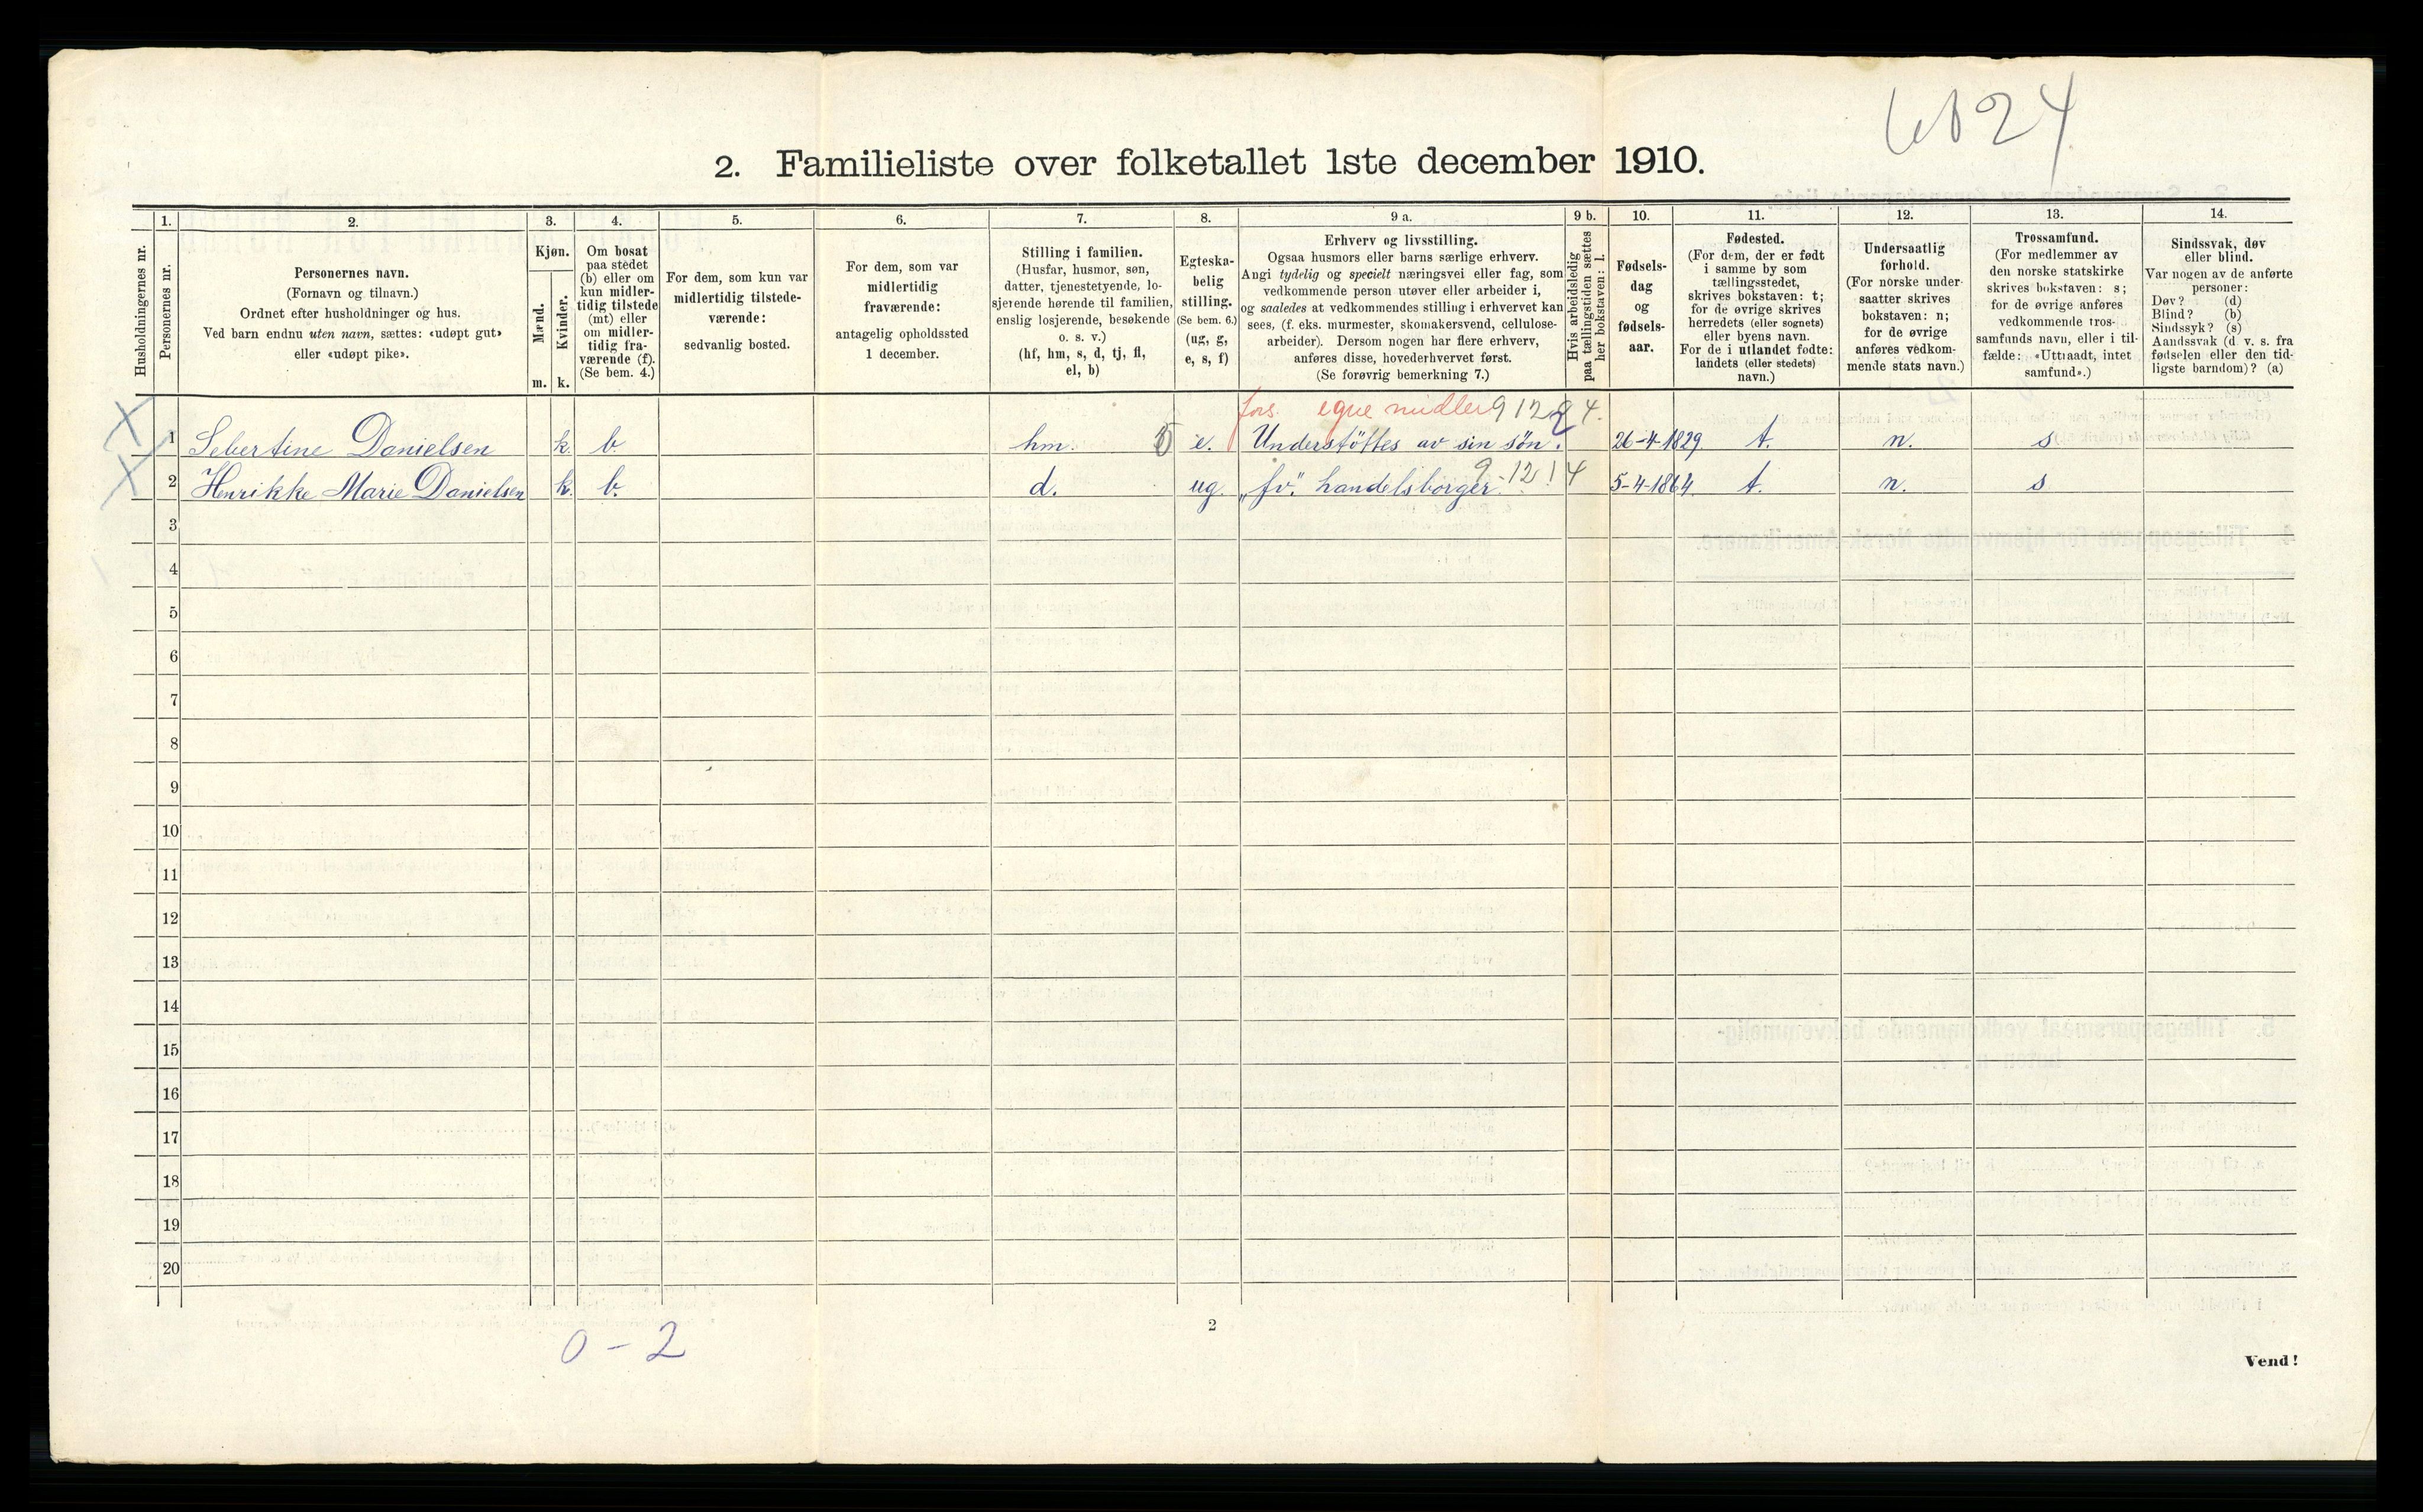 6824
2. Familieliste over folketallet 1ste december 1910.
Husholdningernes nr.
1.
Personernes nr.
2.
Personernes navn.
(Fornavn og tilnavn.)
Ordnet efter husholdninger og hus.
Ved barn endnu uten navn, sættes: «udøpt gut»
eller «udøpt pike».
3.
Kjøn.
Mænd.
Kvinder.
m. k.
4.
Om bosat
paa stedet
(b) eller om
kun midler-
tidig tilstede
(mt) eller
om midler-
tidig fra-
værende (f).
(Se bem. 4.)
5.
For dem, som kun var
midlertidig tilstede-
værende:
sedvanlig bosted.
6.
For dem, som var
midlertidig
fraværende:
antagelig opholdssted
1 december.
7.
Stilling i familien.
(Husfar, husmor, søn,
datter, tjenestetyende, lo-
sjerende hørende til familien,
enslig losjerende, besøkende
o. s. v.)
(hf, hm, s, d, tj, fl,
el, b)
8.
Egteska-
belig
stilling.
(Se bem. 6.)
(ug, g,
e, s, f)
9 a.
Erhverv og livsstilling.
Ogsaa husmors eller barns særlige erhverv.
Angi tydelig og specielt næringsvei eller fag, som
vedkommende person utøver eller arbeider i,
og saaledes at vedkommendes stilling i erhvervet kan
sees, (f. eks. murmester, skomakersvend, cellulose-
arbeider). Dersom nogen har flere erhverv,
anføres disse, hovederhvervet først.
(Se forøvrig bemerkning 7.)
9 b.
Hvis arbeidsledig
paa tællingstiden sættes
her bokstaven: l.
10.
Fødsels-
dag
og
fødsels-
aar.
11.
Fødested.
(For dem, der er født
i samme by som
tællingsstedet,
skrives bokstaven: t;
for de øvrige skrives
herredets (eller sognets)
eller byens navn.
For de i utlandet fødte:
landets (eller stedets)
navn.)
12.
Undersaatlig
forhold.
(For norske under-
saatter skrives
bokstaven: n;
for de øvrige
anføres vedkom-
mende stats navn.)
13.
Trossamfund.
(For medlemmer av
den norske statskirke
skrives bokstaven: s;
for de øvrige anføres
vedkommende tros-
samfunds navn, eller i til-
fælde: «Uttraadt, intet
samfund».)
14.
Sindssvak, døv
eller blind.
Var nogen av de anførte
personer:
Døv? (d)
Blind? (b)
Sindssyk? (s)
Aandssvak (d. v. s. fra
fødselen eller den tid-
ligste barndom)? (a)
fors. egne midler
1 Sebertine Danielsen k. b. hm. e. Understöttes av sin sön. 26-4-1829 t. n. s
2 Henrikke Marie Danielsen k. b. d. ug. „fv." handelsborger 5-4-1864. t. n. s
3
4
5
6
7
8
9
10
11
12
13
14
15
16
17
18
19
20
0 - 2
2
Vend!